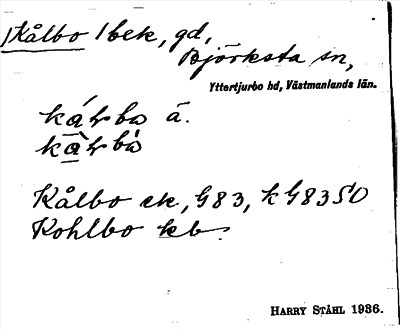 Kålbo 1 bek, gd,
Björksta sn,
Yttertjurbo hd, Västmanlands län.
kå̀ɽbo å.
kå̀ɽbò
Kålbo ek, G83, k G83SO
Kohlbo kb.
HARRY STÅHL 1936.